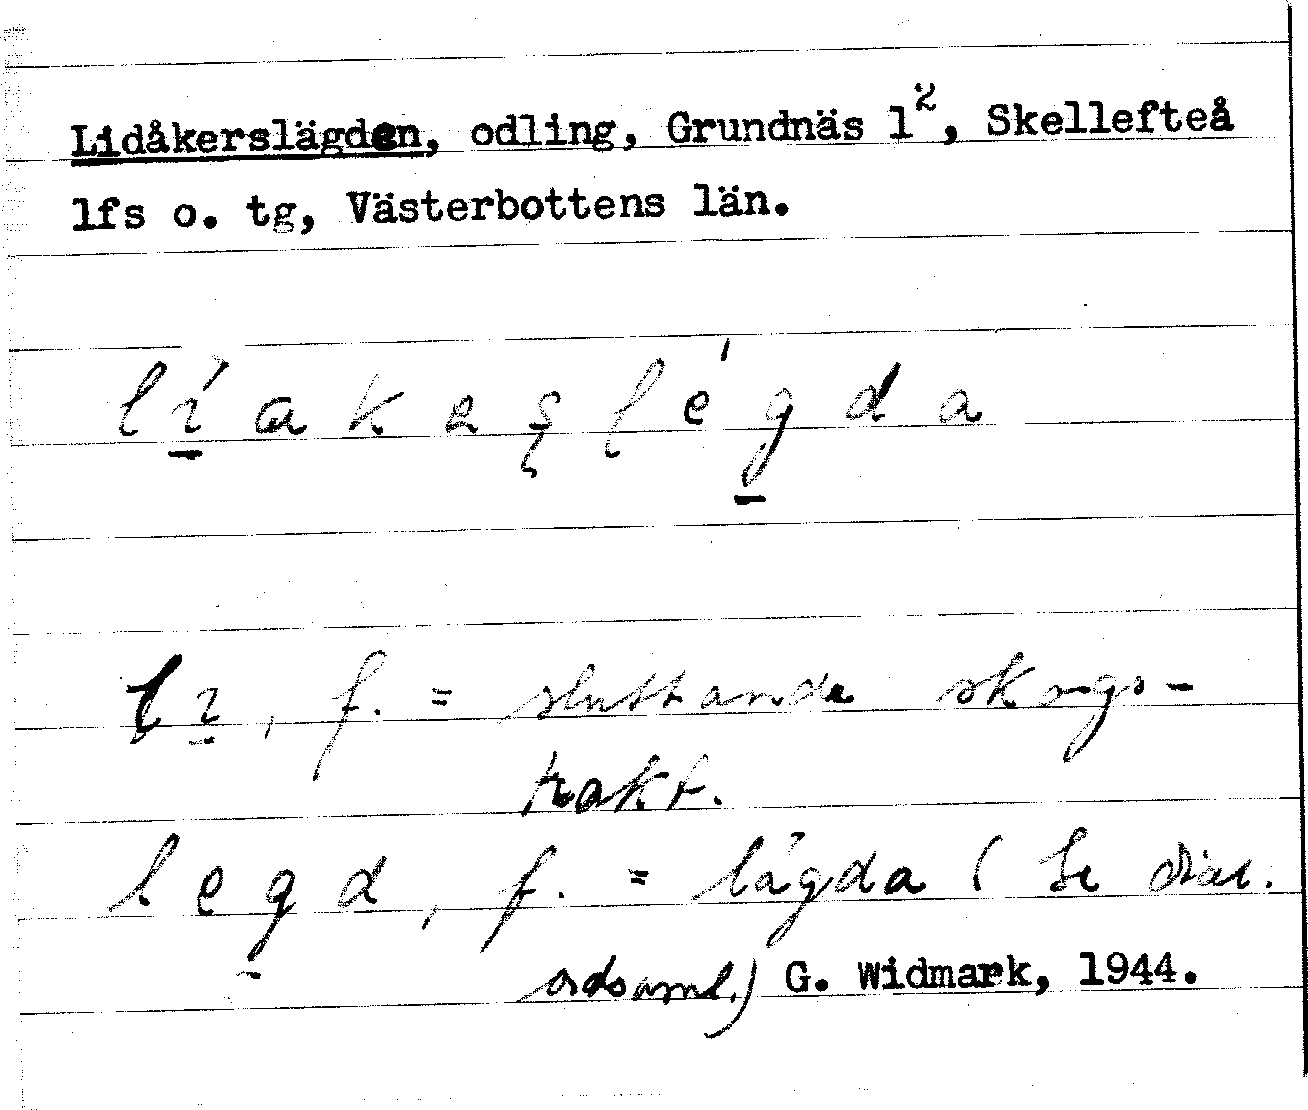 Lidåkerslägden, odling, Grundnäs 1², Skellefteå
lfs o. tg, Västerbottens län.
lɩ́akeslégda
lɩ, f. = sluttande skogs-
trakt.
legd, f. = lägda (Se dial.
ordsaml.) G. Widmark, 1944.